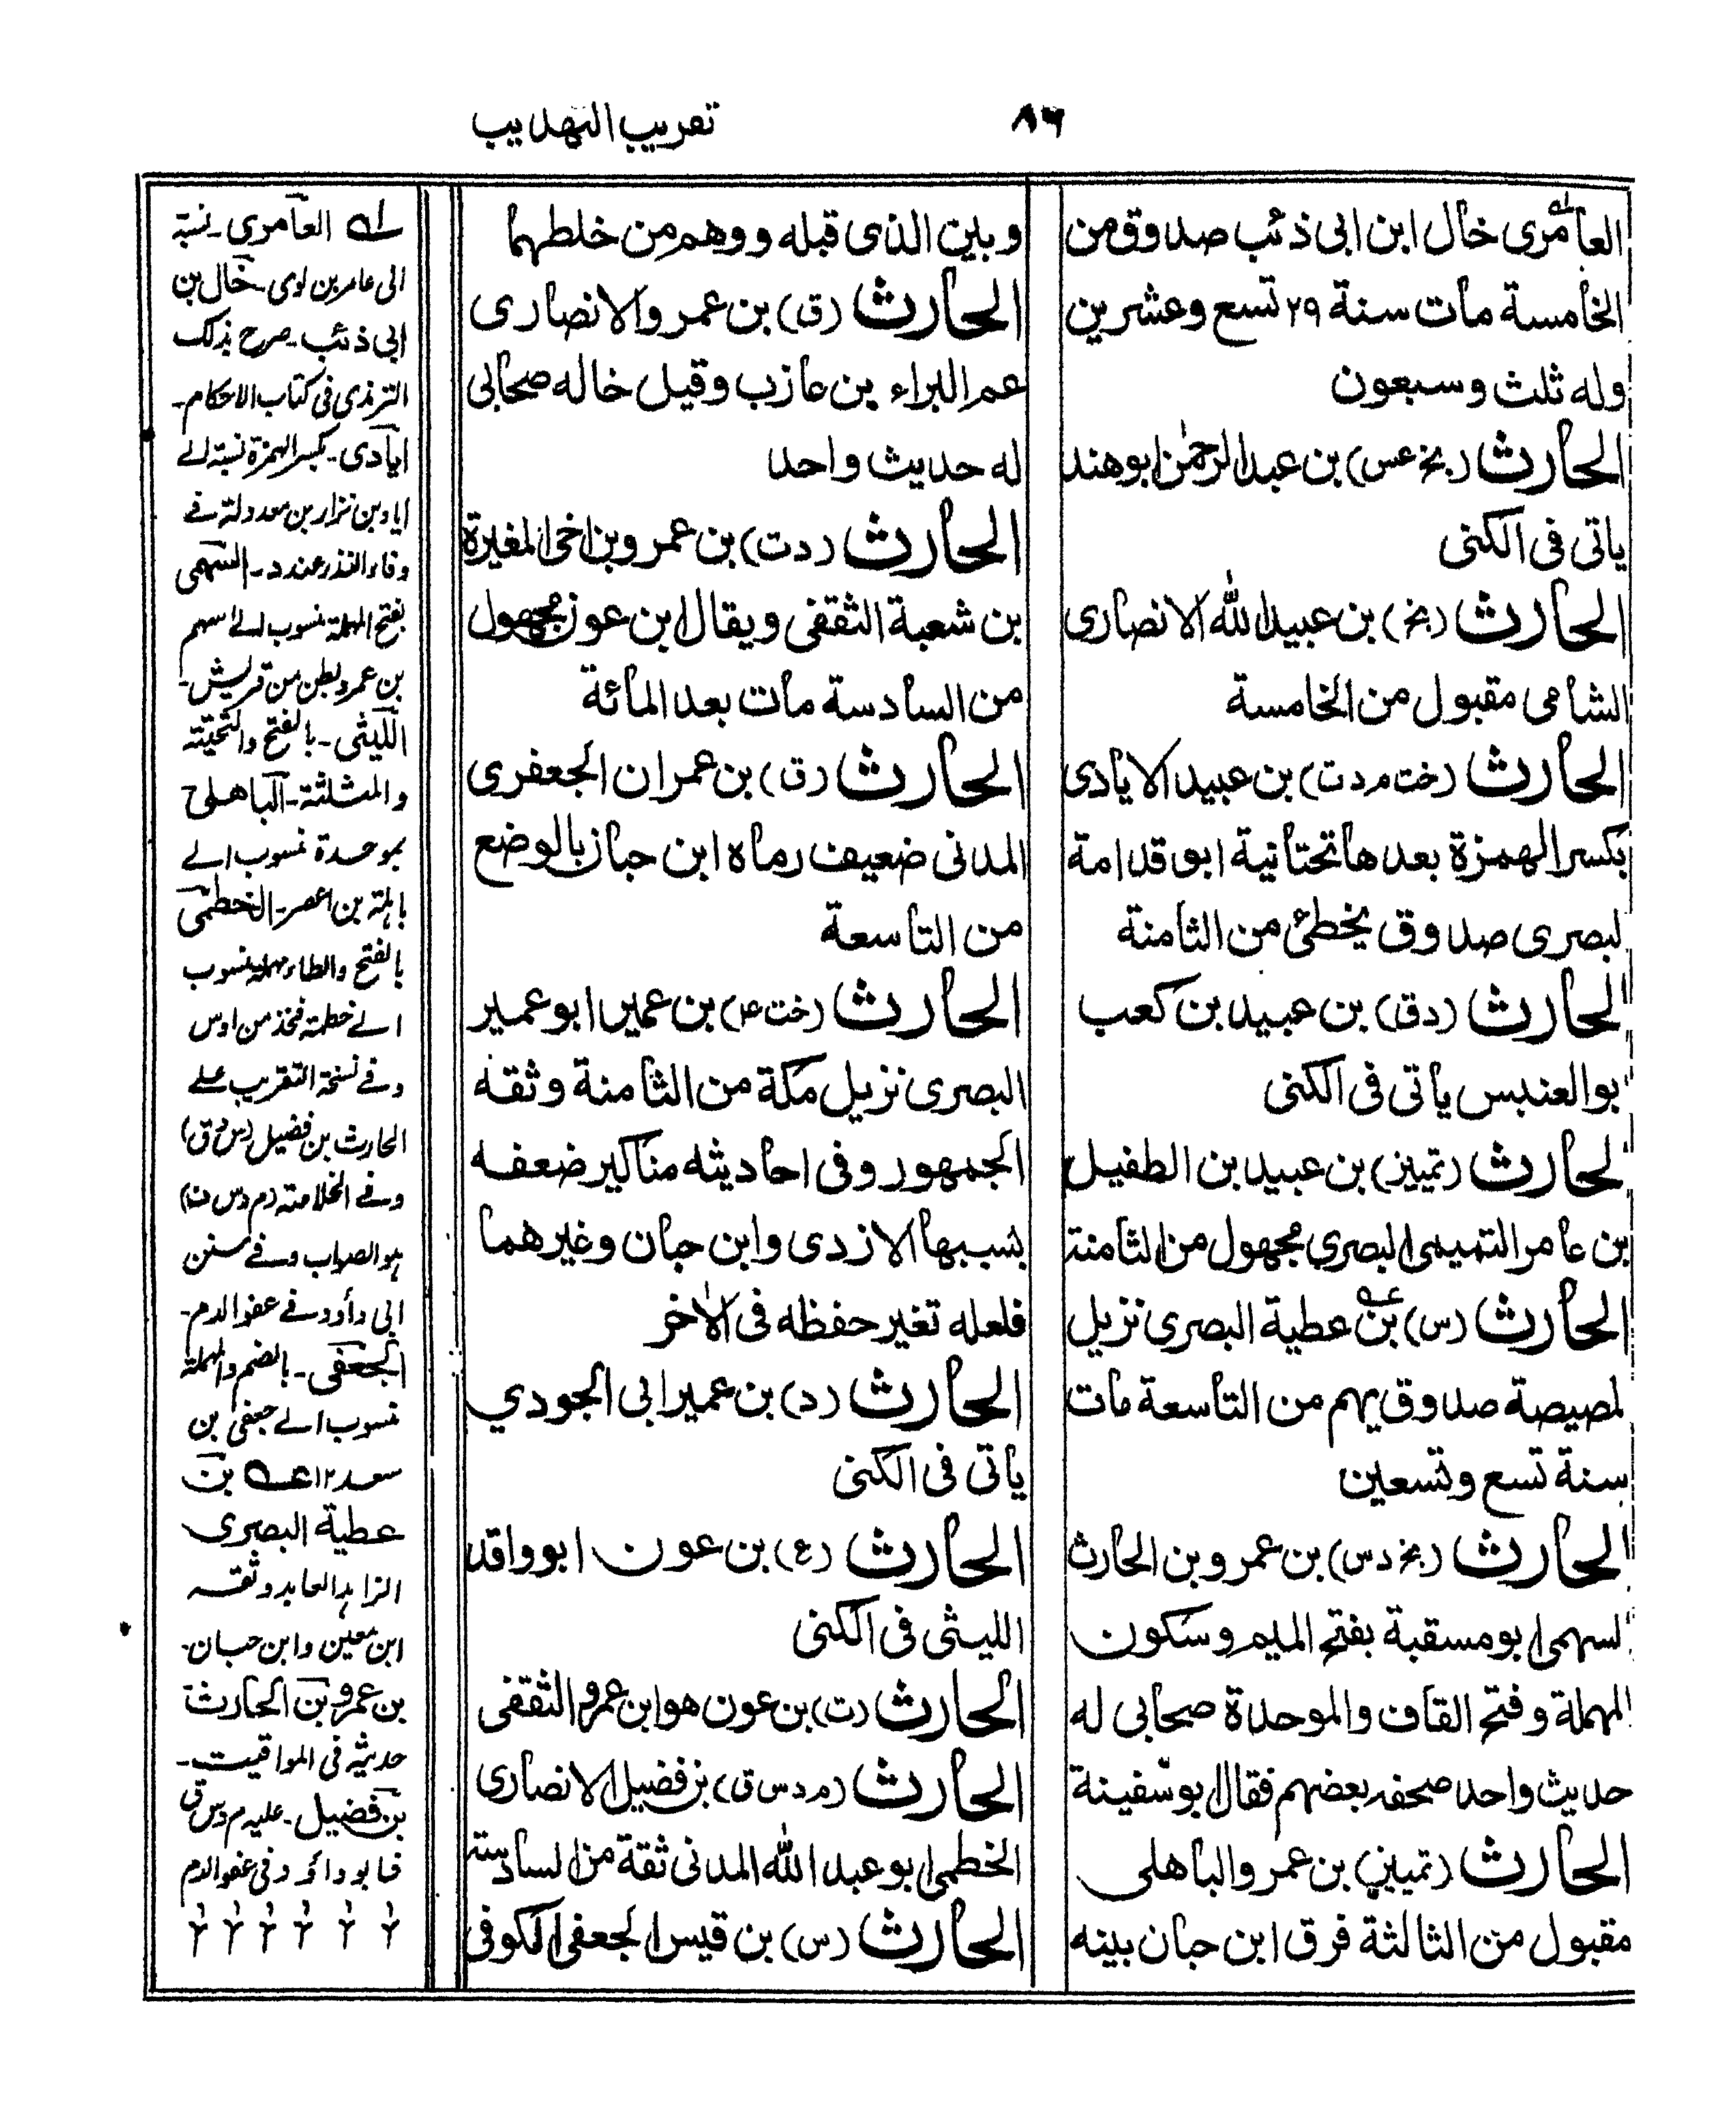 ٨٦
تقريب التهذيب
العامرى خال ابن ابى ذئب صدوق من
الخامسة مات سنة ٢٩ تسع وعشرين
وله ثلث وسبعون
الحارث (بخ عس) بن عبد الرحمٰن ابو هند
ياتى فى الكنى
الحارث (بخ) بن عبيد الله الانصارى
الشامى مقبول من الخامسة
الحارث (خت م د ت) بن عبيد الايادى
بكسر الهمزة بعدها تحتانية ابو قدامة
لبصرى صدوق يخطئ من الثامنة
لحارث (د ق) بن عبيد بن كعب
بو العنبس ياتى فى الكنى
لحارث (تمييز) بن عبيد بن الطفيل
بن عامر التميمى البصري مجهول من الثامنة
الحارث (س) بن عطية البصرى نزيل
لمصيصة صدوق يهم من التاسعة مات
سنة تسع وتسعين
الحارث (بخ د س) بن عمرو بن الحارث
لسهمى ابو مسقبة بفتح الميم وسكون
المهملة وفتح القاف والموحدة صحابى له
حديث واحد صحفه بعضهم فقال ابو سفينة
الحارث (تمييز) بن عمرو الباهلى
مقبول من الثالثة فرق ابن حبان بينه
وبين الذى قبله ووهم من خلطهما
الحارث (ق) بن عمرو الانصارى
عم البراء بن عازب وقيل خاله صحابى
له حديث واحد
الحارث (د ت) بن عمرو بن اخى المغيرة
بن شعبة الثقفى ويقال ابن عون مجهول
من السادسة مات بعد المائة
الحارث (ق) بن عمران الجعفرى
المدنى ضعيف رماه ابن حبان بالوضع
من التاسعة
الحارث (خت ٤) بن عمير ابو عمير
البصرى نزيل مكة من الثامنة وثقه
الجمهور وفى احاديثه مناكير ضعفه
بسببها الازدى وابن حبان وغيرهما
فلعله تغير حفظه فى الاٰخر
الحارث (د) بن عمير ابى الجودي
ياتى فى الكنى
الحارث (ع) بن عون ابو واقد
الليثى فى الكنى
الحارث (ت) بن عون هو ابن عمرو الثقفى
الحارث (م د س ق) بن فضيل الانصارى
الخطمى ابو عبد الله المدنى ثقة من السادسة
الحارث (س) بن قيس الجعفى الكوفى
له العامري - نسبة
الى عامر بن لوى - خال بن
ابى ذئب - صرح بذلك
الترمذى فى كتاب الاحكام -
ايادى - بكسر الهمزة نسبة الے
اياد بن نزار بن معد وله فے
وفاء النذر عند د - السهمى
بفتح المهملة منسوب الے سهم
بن عمرو بطن من قريش -
الليثى - بالفتح والتحتية
والمثلثة - الباهلى
بموحدة منسوب الے
باهلة بن اعصر - الخطمى
بالفتح والطاء مهملة منسوب
الے خطمة فخذ من اوس
وفے نسخة التقريب علے
الحارث بن فضيل (س ق)
وفے الخلاصة (م د س ق)
هو الصواب وفے سنن
ابى داؤد فے عفو الدم -
الجعفى - بالضم والمهملة
منسوب الے جعفى بن
سعد ١٢ عه بن
عطية البصرى
الزاهد العابد وثقه
ابن معين وابن حبان -
بن عمرو بن الحارث
حديثه فى المواقيت -
بن فضيل - عليه م د س ق
فابو داؤد فى عفو الدم